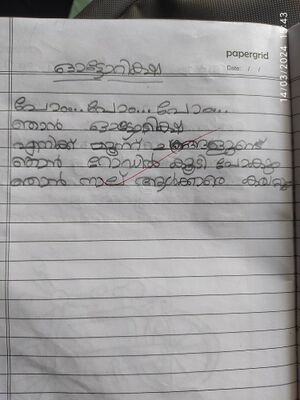 papergrid
Date: / /
14/03/2024 15:43
ഓട്ടോറിക്ഷ
പോം... പോം... പോം...
ഞാൻ ഓട്ടോറിക്ഷ
എനിക്ക് മൂന്ന് ചക്രങ്ങളുണ്ട്
ഞാൻ റോഡിൽ കൂടി പോകും
ഞാൻ നാല് ആൾക്കാരെ കയറ്റും